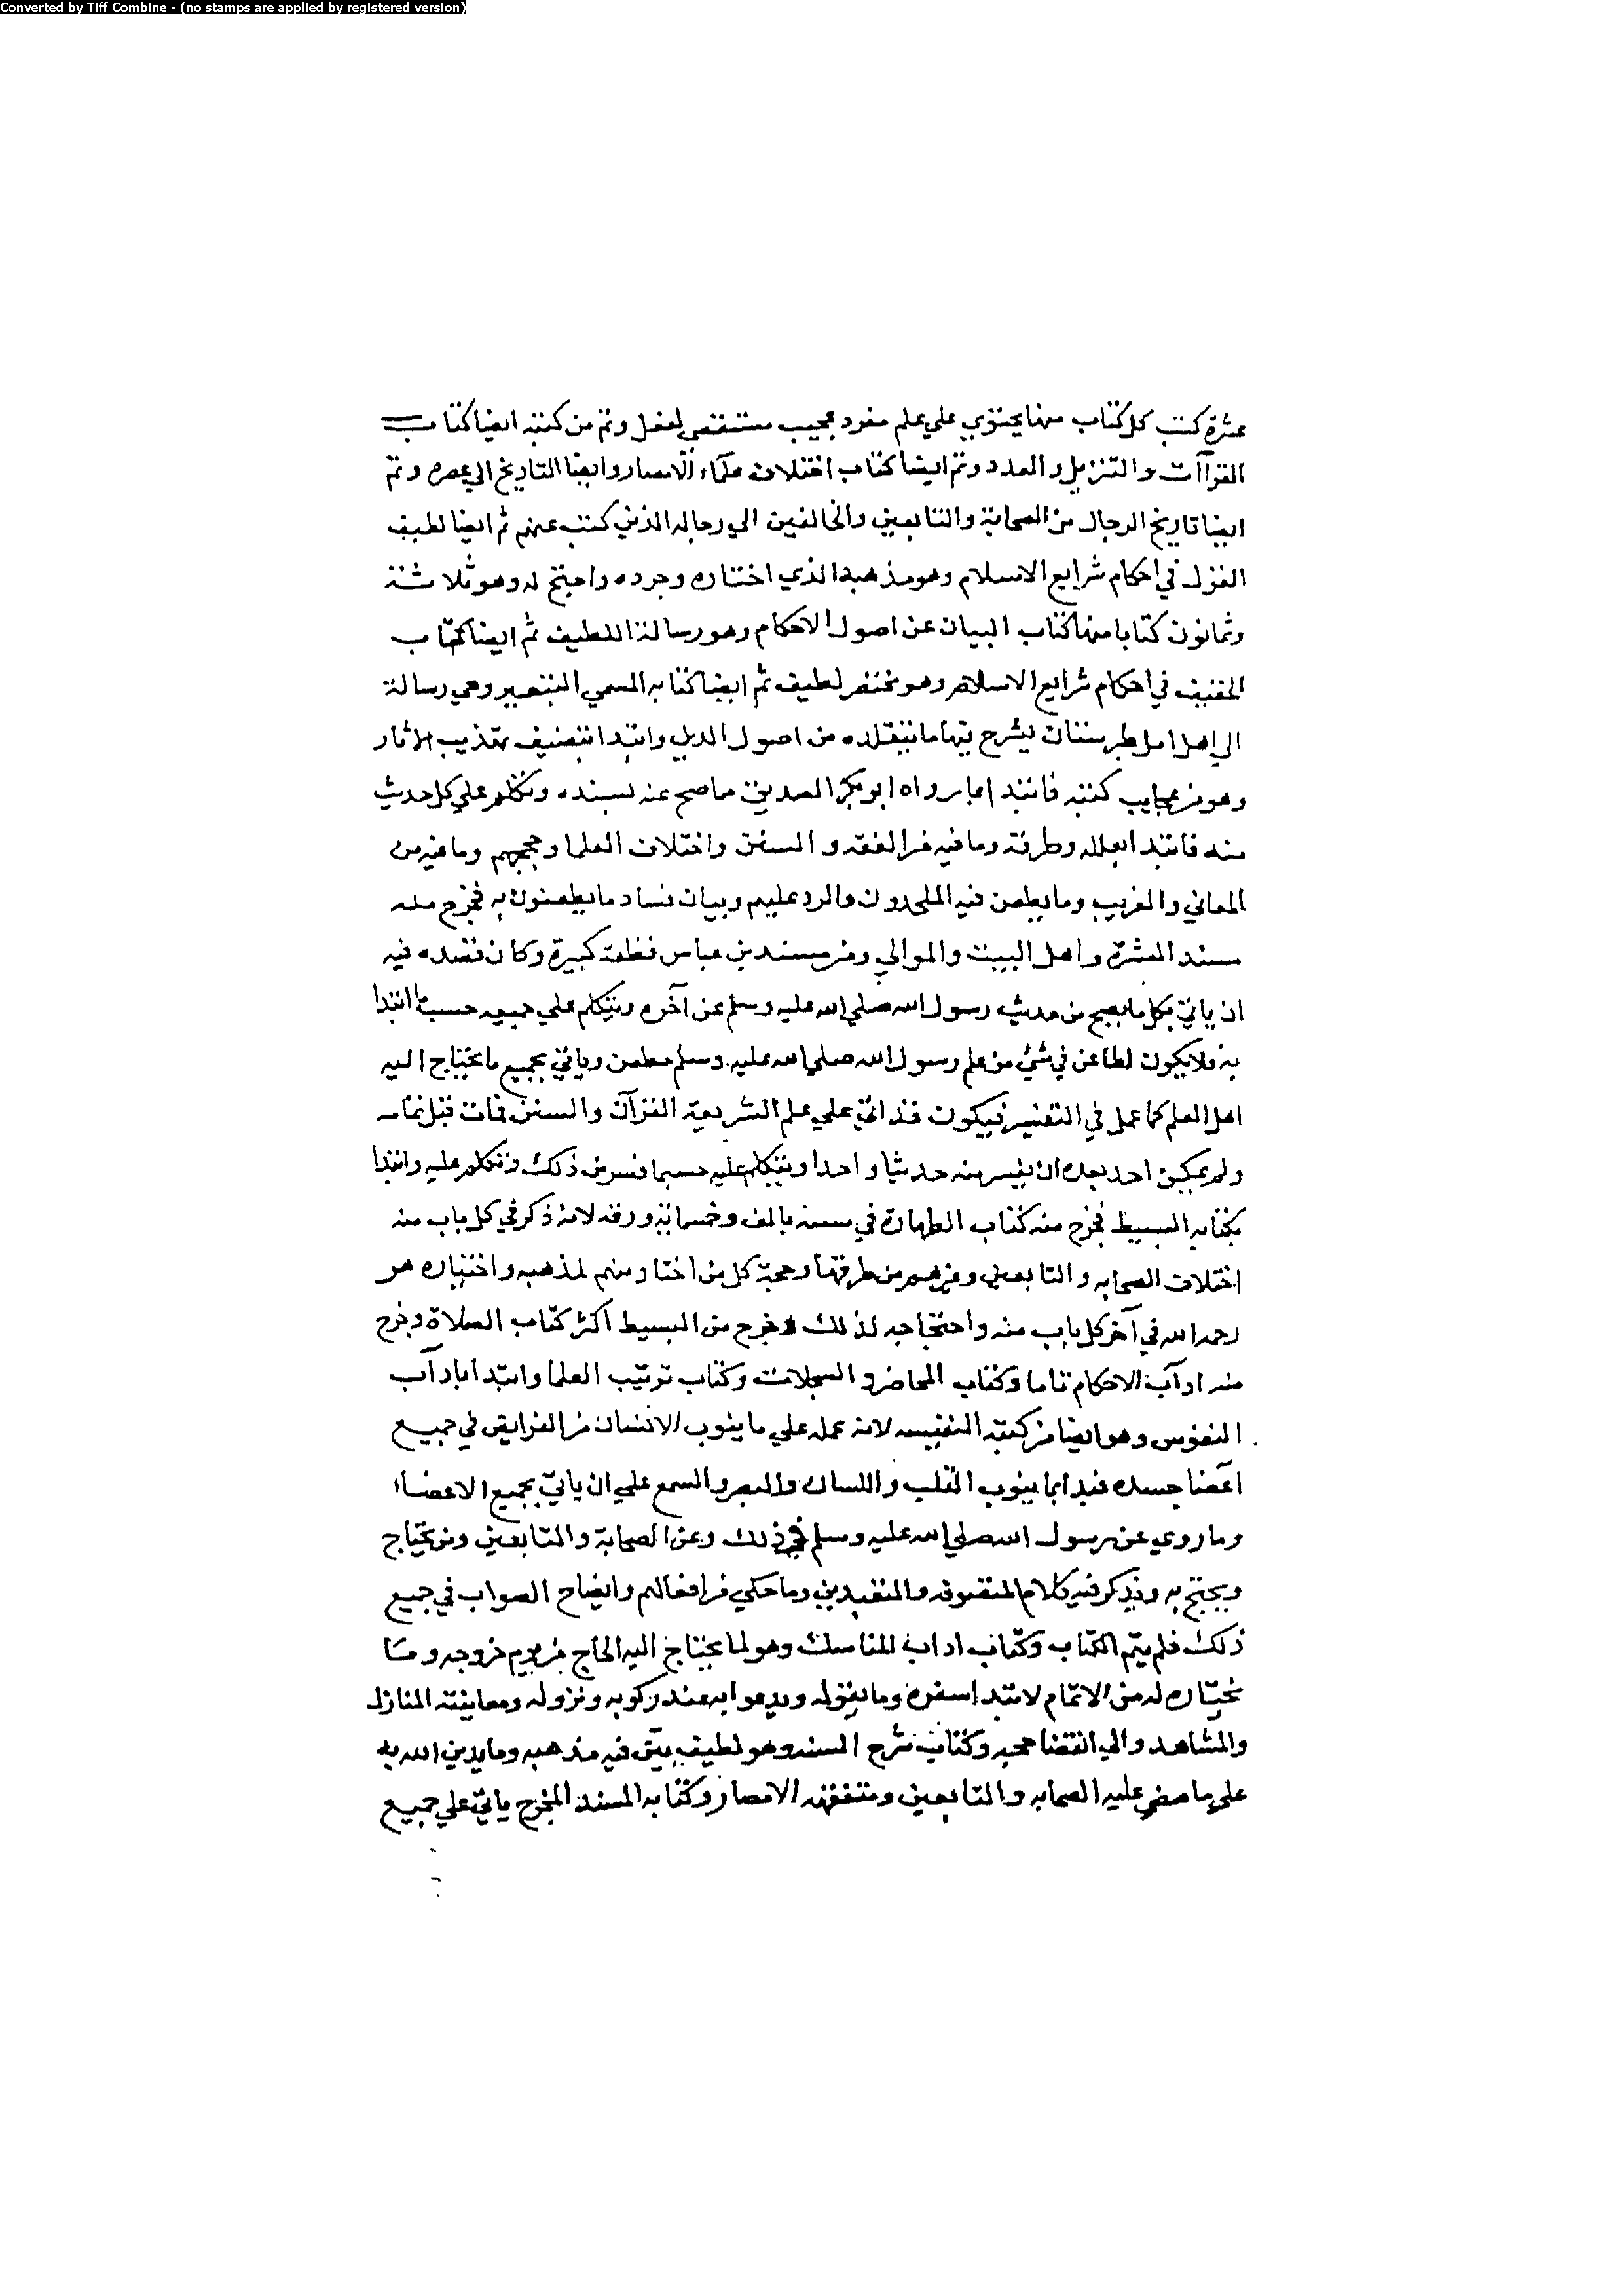 Converted by Tiff Combine - (no stamps are applied by registered version)
عشرة كتب كل كتاب منها يحتوي علي علم مفرد عجيب مستقصي لعضل وتم من كتبه ايضا كتاب
القراآت والتنزيل والعدد وتم ايضا كتاب اختلاف علماء الامصار وايضا التاريخ الي عصره وتم
ايضا تاريخ الرجال من الصحابة والتابعين والخالفين الي رجاله الذين كتب عنهم ثم ايضا لطيف
القول في احكام شرايع الاسلام وهو مذهبه الذي اختاره وجرده واحتج له وهو ثلاثة
وثمانون كتابا منها كتاب البيان عن اصول الاحكام وهو رسالة اللطيف ثم ايضا كتاب
الخفيف في احكام شرايع الاسلام وهو مختصر لطيف ثم ايضا كتابه المسمي التبصير وهي رسالة
الي اهل امل طبرستان يشرح فيها ما يتقلده من اصول الدين وابتدا بتصنيف تهذيب الاثار
وهو من عجايب كتبه فابتدا بما رواه ابو بكر الصديق مما صح عنه بسنده وتكلم علي كل حديث
منه فابتدا بعلله وطرقه وما فيه من الفقه والسنن واختلاف العلما وحججهم وما فيه من
المعاني والغريب وما يطعن فيه الملحدون والرد عليهم وبيان فساد ما يطعنون به فخرج منه
مسند العشرة واهل البيت والموالي ومن مسند بن عباس قطعة كبيرة وكان قصده فيه
ان ياتي بكل ما يصح من حديث رسول الله صلي الله عليه وسلم عن آخره ويتكلم علي جميعه حسب ما ابتدا
به فلا يكون لطاعن في شيء من علم رسول الله صلي الله عليه وسلم مطعن وياتي بجميع ما يحتاج اليه
اهل العلم كما عمل في التفسير فيكون قد اتي علي علم الشريعة القرآن والسنن فمات قبل تمامه
ولم يمكن احد بعده ان يفسر منه حديثا واحدا ويتكلم عليه حسبما فسر من ذلك وتكلم عليه وابتدا
بكتابه البسيط فخرج منه كتاب الطهارة في بالف وخمسماية ورقه لانه ذكر في كل باب منه
اختلاف الصحابه والتابعين وغيرهم من طرقها وحجة كل من اختار منهم لمذهبه واختياره هو
رحمه الله في آخر كل باب منه واحتجاجه لذلك وخرج من البسيط اكثر كتاب الصلاة وخرج
منه ادآب الاحكام تاما وكتاب المحاضر والسجلات وكتاب ترتيب العلما وابتدا بادآب
النفوس وهو ايضا من كتبه النفيسه لانه عمله علي ما ينوب الانسان من الفرايض في جميع
اعضا جسده فبدا بما ينوب القلب واللسان والبصر والسمع علي ان ياتي بجميع الاعضاء
وما روي عن رسول الله صلي الله عليه وسلم في ذلك وعن الصحابة والتابعين ومن يحتاج
ويحتج به ويذكر فيه كلام المتصوفه والمتعبدين وما حكي من افعالهم وايضاح الصواب في جميع
ذلك فلم يتم الكتاب وكتاب اداب المناسك وهو لما يحتاج اليه الحاج من يوم خروجه وما
يختاره له من الاتمام لابتدا سفره وما يقوله ويدعوا به عند ركوبه ونزوله ومعاينته المنازل
والمشاهد والي انقضا حجه وكتاب شرح السنه وهو لطيف بيّن فيه مذهبه وما يدين الله به
علي ما مضي عليه الصحابه والتابعين ومتفقهه الامصار وكتابه المسند المخرج ياتي علي جميع